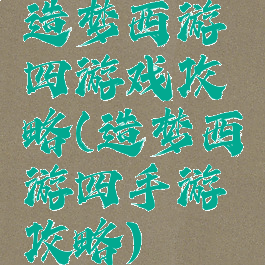 造梦西游
四游戏攻
略(造梦西
游四手游
攻略)